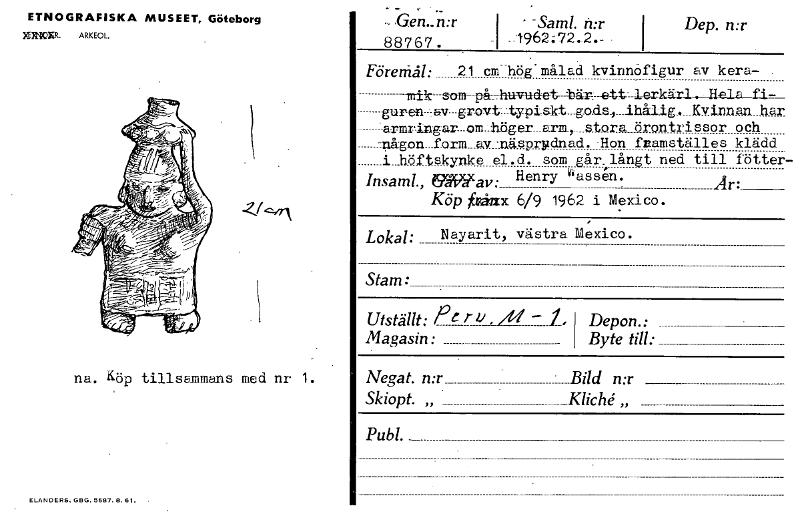 ETNOGRAFISKA MUSEET, Göteborg
ARKEOL.
21 cm
na. Köp tillsammans med nr 1.
ELANDERS. GBG. 5587. 8. 61.
Gen. n:r
88767.
Saml. n:r
1962:72.2.
Dep. n:r
Föremål: 21 cm hög målad kvinnofigur av kera-
mik som på huvudet bär ett lerkärl. Hela fi-
guren av grovt typiskt gods, ihålig. Kvinnan har
armringar om höger arm, stora örontrissor och
någon form av näsprydnad. Hon framställes klädd
i höftskynke el.d. som går långt ned till fötter-
Insaml., Gåva av: Henry Wassén. År:
Köp från 6/9 1962 i Mexico.
Lokal: Nayarit, västra Mexico.
Stam:
Utställt: Peru. M-1. Depon.:
Magasin: Byte till:
Negat. n:r Bild n:r
Skiopt. „ Kliché „
Publ.